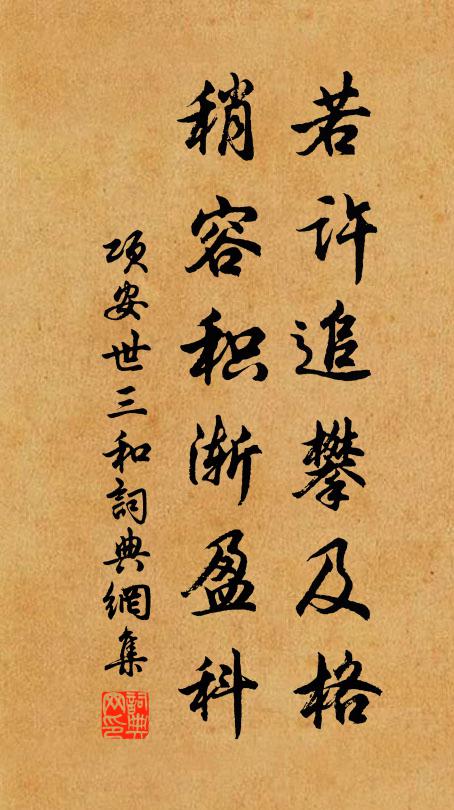 若许追攀及格
稍容积渐盈科
项安世三和詞典網集
詞典
网印